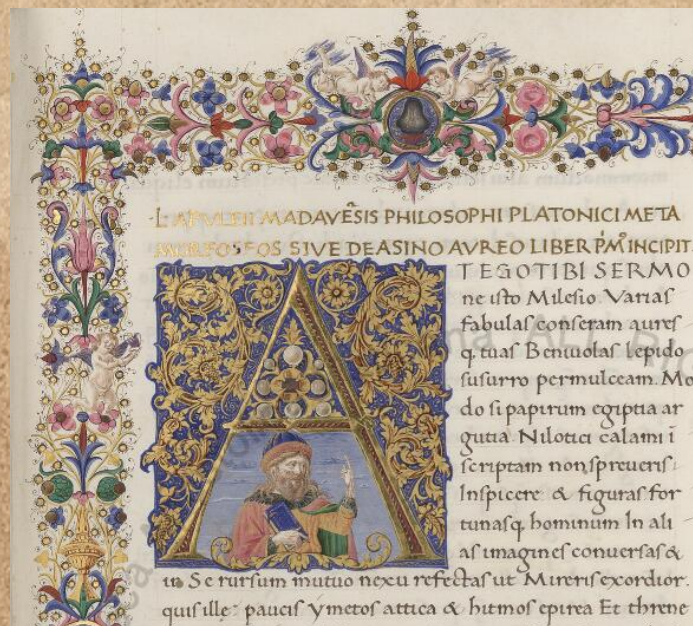 L·APVLEII MADAVẼSIS PHILOSOPHI PLATONICI META
MORFOSEOS SIVE DE ASINO AVREO LIBER P̃M⁹ INCIPIT
A
T EGO TIBI SERMO
ne isto Milesio. Varias
fabulas conseram aures
q tuas Beniuolas lepido
susurro permulceam. Mo
do si papirum egiptia ar
gutia Nilotici calami ĩ
scriptam non spreueris:
Inspicere & figuras for
tunasq hominum In ali
as imagines conuersas &
in Se rursum mutuo nexu refectas ut Mireris exordior.
quis ille: paucis Ymetos attica & hitmos epirea Et threne